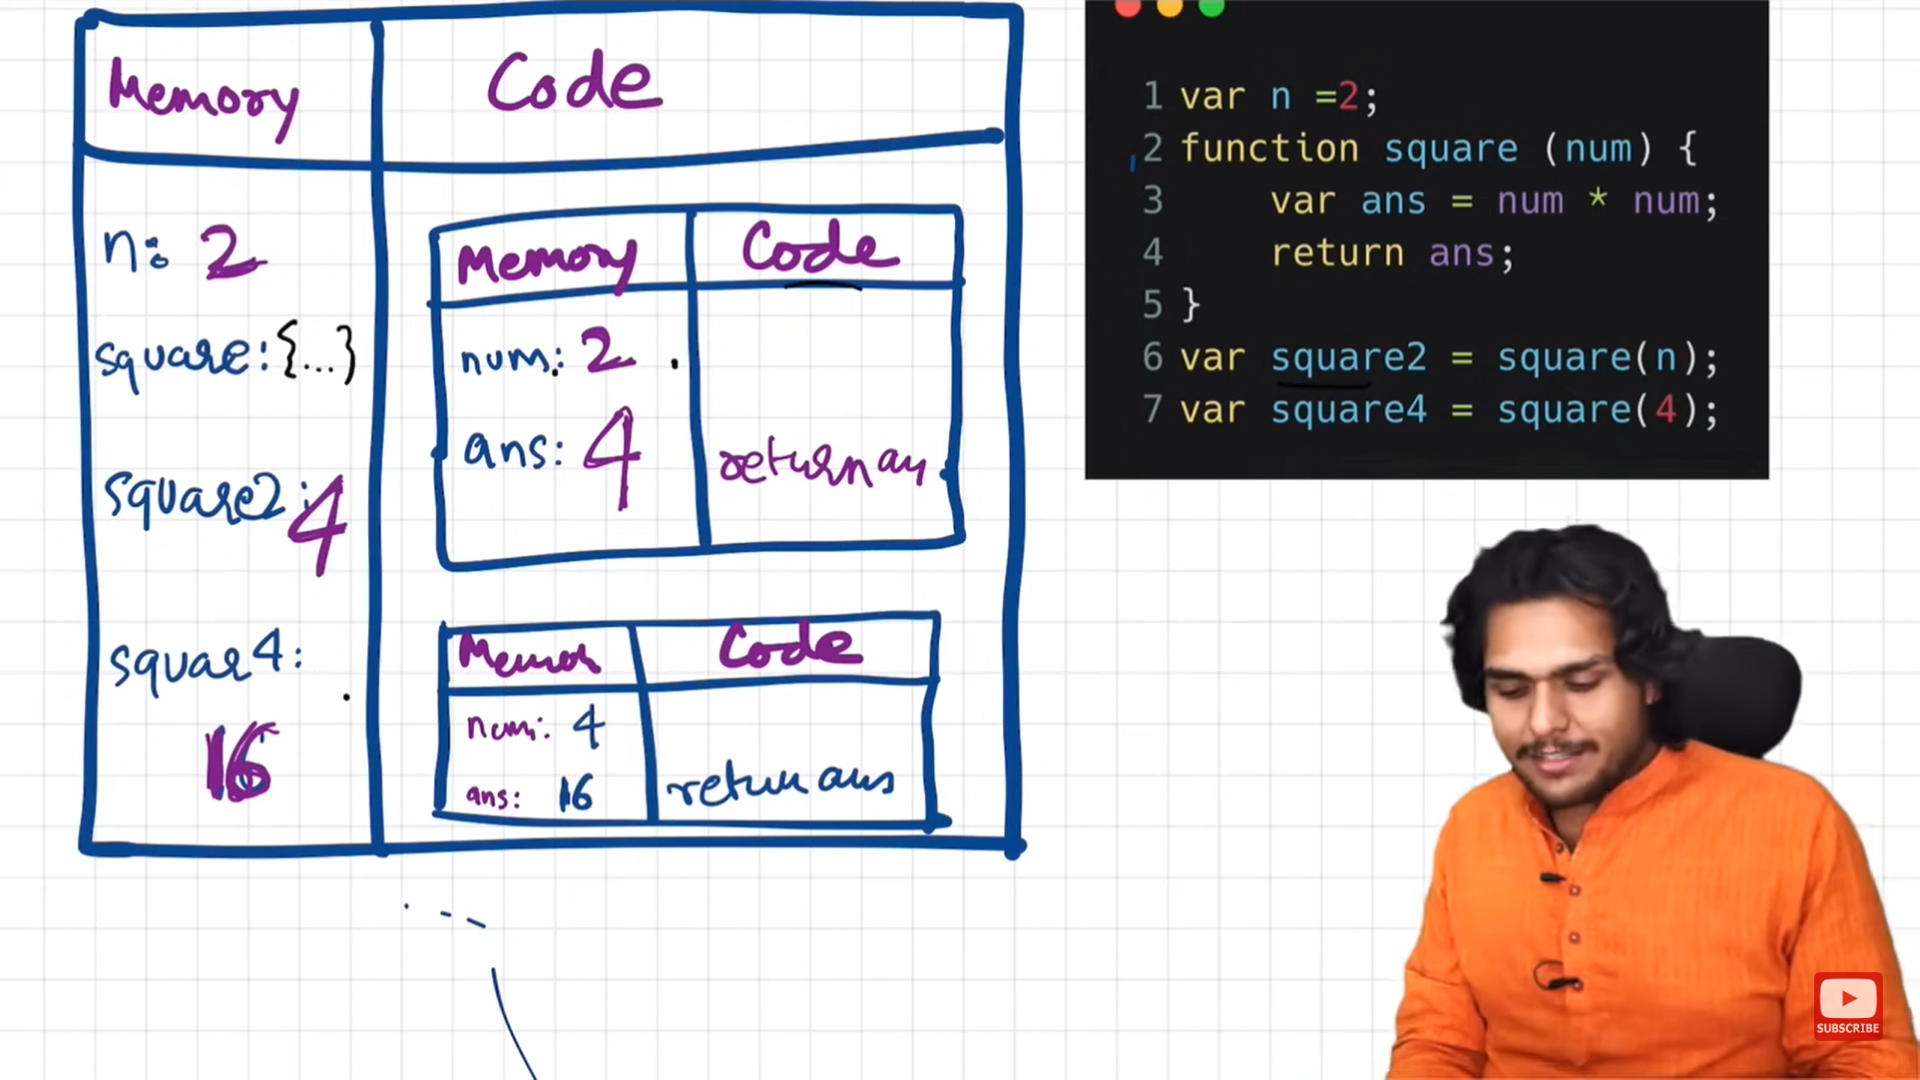 Memory
Code
n: 2
square: {...}
square2: 4
squar4:
16
Memory
Code
num: 2
ans: 4
return an
Memor
Code
num: 4
ans: 16
return ans
1 var n =2;
2 function square (num) {
3 var ans = num * num;
4 return ans;
5 }
6 var square2 = square(n);
7 var square4 = square(4);
SUBSCRIBE